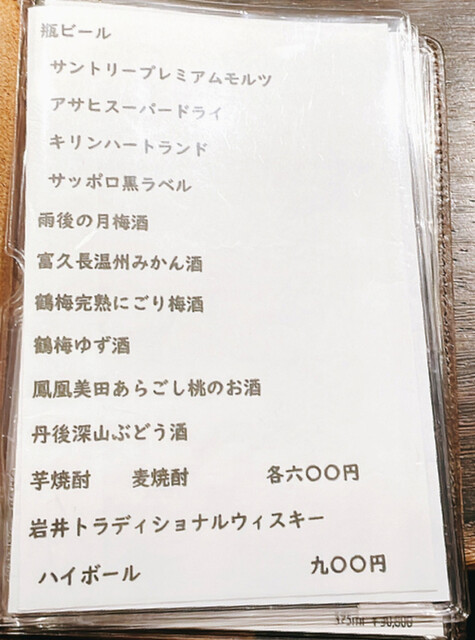 瓶ビール
サントリープレミアムモルツ
アサヒスーパードライ
キリンハートランド
サッポロ黒ラベル
雨後の月梅酒
富久長温州みかん酒
鶴梅完熟にごり梅酒
鶴梅ゆず酒
鳳凰美田あらごし桃のお酒
丹後深山ぶどう酒
芋焼酎 麦焼酎 各六〇〇円
岩井トラディショナルウィスキー
ハイボール 九〇〇円